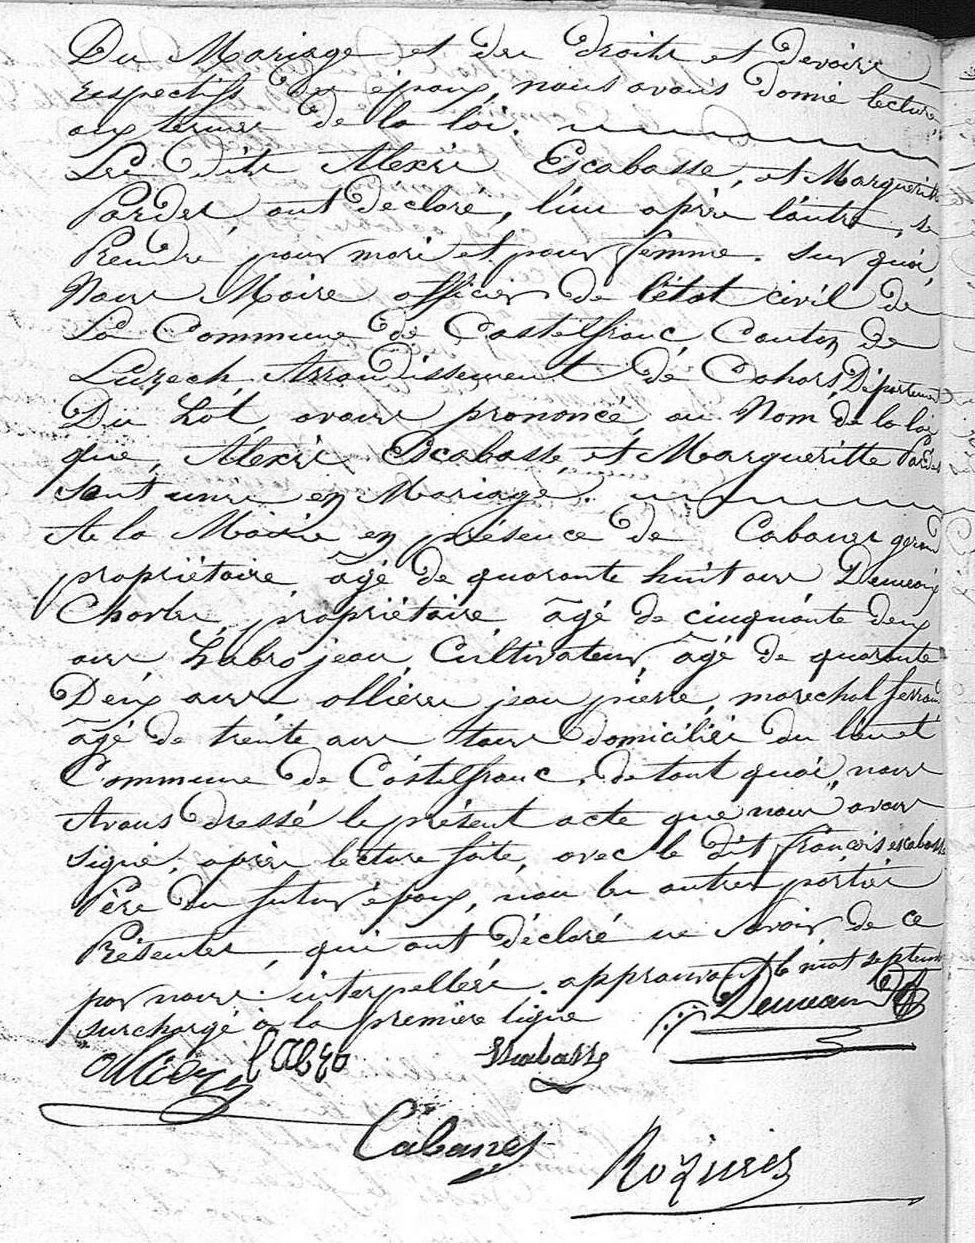 Du Mariage et des droits et devoirs
respectifs des époux, nous avons donné lecture
aux termes de la loi.
Les dits Alexis Escabasse, et Marguerite
Pardes, ont déclaré, l'un après l'autre, se
Prendre pour mari et pour femme. sur quoi
Nous Maire officier de l'état civil de
La Commune de Castelfranc Canton de
Luzech Arrondissement de Cahors, Département
Du Lot, avons prononcé, au Nom, de la loi
que, Alexis Escabasse, et Margueritte Pardes
sont unis en Mariage.
A la Mairie en présence de Cabanes
propriétaire âgé de quarante huit ans Demeaux
Charles, propriétaire âgé de cinquante deux
ans Labro jean, Cultivateur, âgé de quarante
Deux ans ollières jean pierre, marechal ferrant
âgé de trente ans tous domiciliés du lieu et
Commune de Castelfranc, de tout quoi, nous
Avons dressé le présent acte que nous avons
signé, après lecture faite, avec le dit françois escabasse
Père du futur époux, non les autres parties
Présentes, qui ont déclaré ne savoir de ce
par nous interpellés. approuvant le mot septembre
surchargé à la première ligne
Demeaux
Labro
Escabasse
Ollières
Cabanes
Roziéres